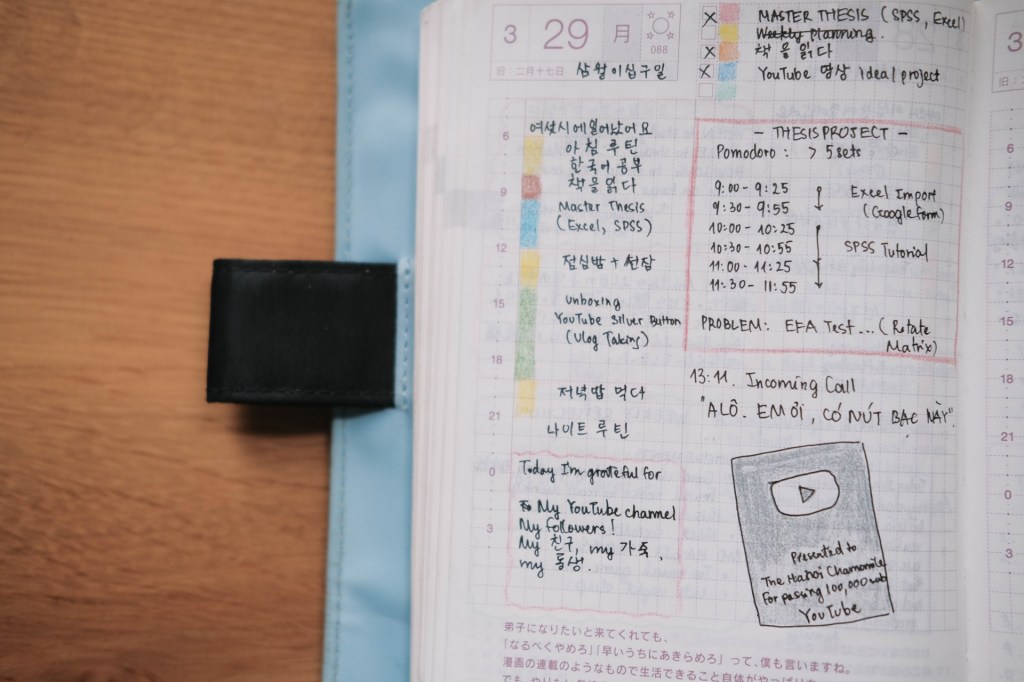 3 29 月
088
旧：二月十七日
삼월이십구일
MASTER THESIS (SPSS, Excel)
Weekly planning.
책을 읽다
YouTube 영상 Idea/project
6
9
12
15
18
21
0
3
여섯시에일어났어요
아침 루틴
한국어 공부
책을 읽다
Master Thesis
(Excel, SPSS)
점심밥 +
unboxing
YouTube Silver Button
(Vlog Taking)
저녁밥 먹다
나이트 루틴
Today I'm grateful for
My YouTube channel
My followers!
My 친구, my 가족,
my 동생.
- THESIS PROJECT -
Pomodoro : > 5 sets
9:00 - 9:25
9:30 - 9:55
10:00 - 10:25
10:30 - 10:55
11:00 - 11:25
11:30 - 11:55
Excel Import
(Google form)
SPSS Tutorial
PROBLEM: EFA Test... (Rotate
Matrix)
13:11. Incoming Call
"ALÔ. EM ƠI, CÓ NÚT BẠC NÀY".
Presented to
The Hanoi Chamomile
For passing 100,000 sub
YouTube
弟子になりたいと来てくれても、
「なるべくやめろ」「早いうちにあきらめろ」って、僕も言いますね。
漫画の連載のようなもので生活できること自体がやっぱり
3
旧：
6
9
12
15
18
21
0
3